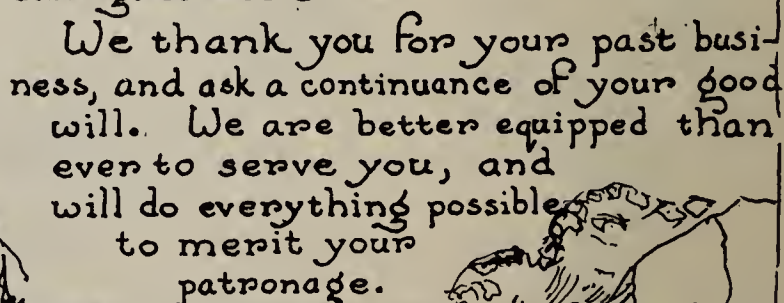 We thank you for your past busi-
ness, and ask a continuance of your good
will. We are better equipped than
ever to serve you, and
will do everything possible
to merit your
patronage.